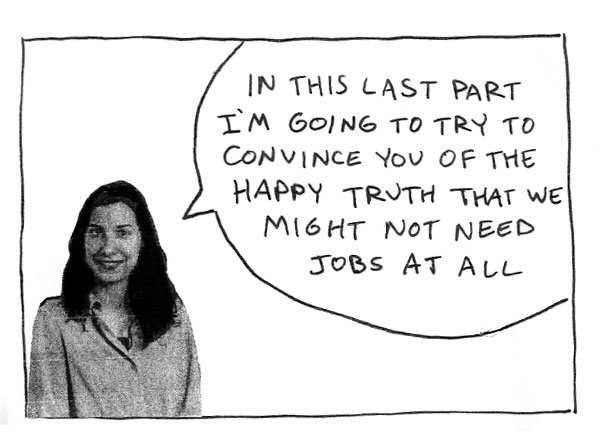 IN THIS LAST PART
I'M GOING TO TRY TO
CONVINCE YOU OF THE
HAPPY TRUTH THAT WE
MIGHT NOT NEED
JOBS AT ALL